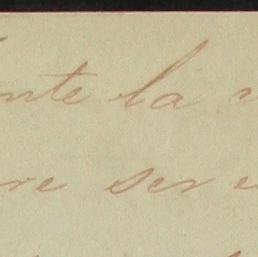 nte la
re ser